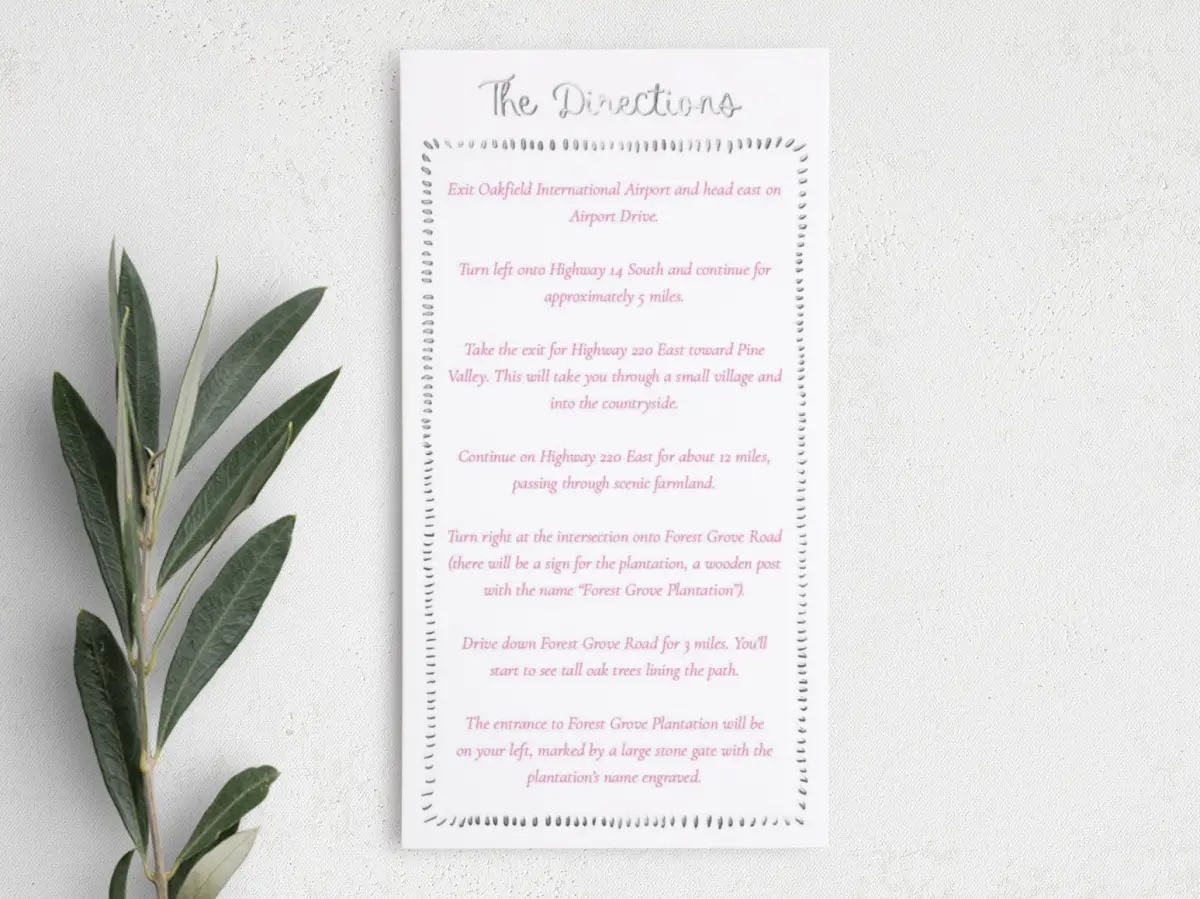 The Directions
Exit Oakfield International Airport and head east on
Airport Drive.
Turn left onto Highway 14 South and continue for
approximately 5 miles.
Take the exit for Highway 220 East toward Pine
Valley. This will take you through a small village and
into the countryside.
Continue on Highway 220 East for about 12 miles,
passing through scenic farmland.
Turn right at the intersection onto Forest Grove Road
(there will be a sign for the plantation, a wooden post
with the name “Forest Grove Plantation”).
Drive down Forest Grove Road for 3 miles. You'll
start to see tall oak trees lining the path.
The entrance to Forest Grove Plantation will be
on your left, marked by a large stone gate with the
plantation's name engraved.